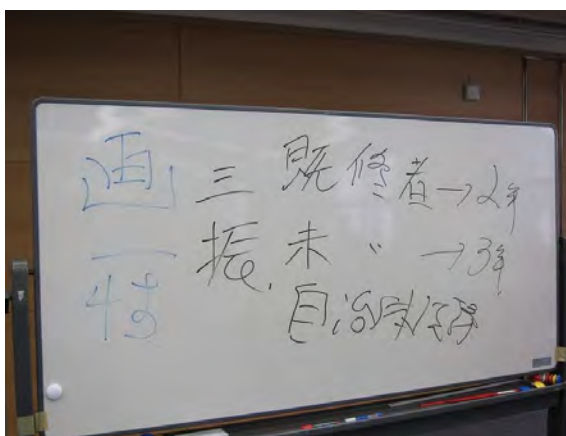 画一
三振
既修者→2年
未 〃 →3年
自治